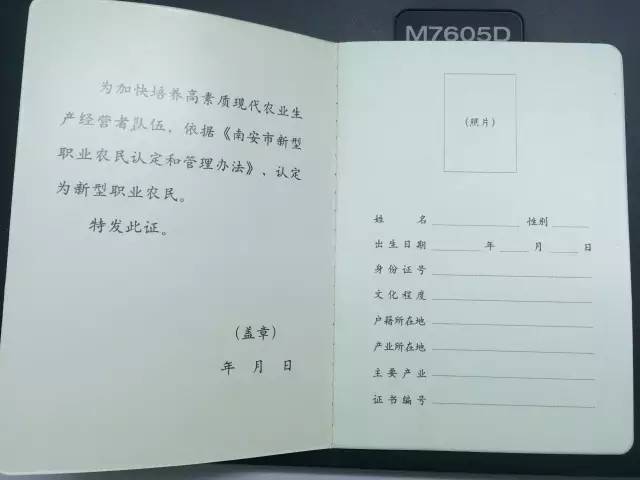 M7605D
为加快培养高素质现代农业生
产经营者队伍，依据《南安市新型
职业农民认定和管理办法》、认定
为新型职业农民。
特发此证。
（盖章）
年 月 日
（照片）
姓 名 性别
出生日期 年 月 日
身份证号
文化程度
户籍所在地
产业所在地
主要产业
证书编号